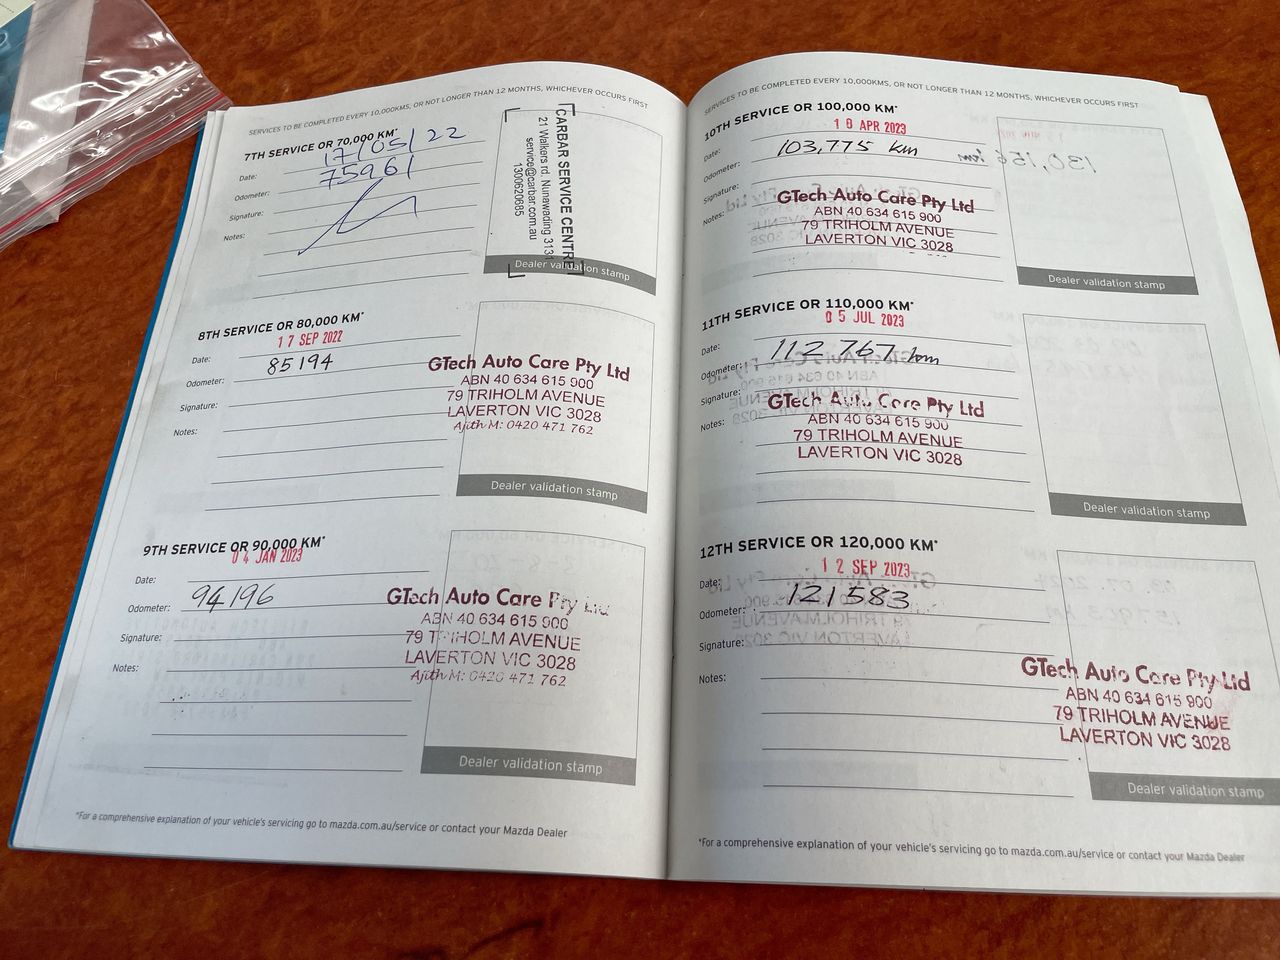 SERVICES TO BE COMPLETED EVERY 10,000KMS, OR NOT LONGER THAN 12 MONTHS, WHICHEVER OCCURS FIRST
7TH SERVICE OR 70,000 KM*
Date: 17/05/22
Odometer: 75961
Signature:
Notes:
CARBAR SERVICE CENTRE
21 Walkers rd. Nunawading 3131
service@carbar.com.au
1300620685
Dealer validation stamp
8TH SERVICE OR 80,000 KM*
17 SEP 2022
Date:
Odometer: 85194
Signature:
Notes:
GTech Auto Care Pty Ltd
ABN 40 634 615 900
79 TRIHOLM AVENUE
LAVERTON VIC 3028
Ajith M: 0420 471 762
Dealer validation stamp
9TH SERVICE OR 90,000 KM*
04 JAN 2023
Date:
Odometer: 94196
Signature:
Notes:
GTech Auto Care Pty Ltd
ABN 40 634 615 900
79 TRIHOLM AVENUE
LAVERTON VIC 3028
Ajith M: 0420 471 762
Dealer validation stamp
*For a comprehensive explanation of your vehicle's servicing go to mazda.com.au/service or contact your Mazda Dealer
SERVICES TO BE COMPLETED EVERY 10,000KMS, OR NOT LONGER THAN 12 MONTHS, WHICHEVER OCCURS FIRST
10TH SERVICE OR 100,000 KM*
18 APR 2023
Date:
103,775 km
Odometer:
Signature:
Notes:
GTech Auto Care Pty Ltd
ABN 40 634 615 900
79 TRIHOLM AVENUE
LAVERTON VIC 3028
Dealer validation stamp
11TH SERVICE OR 110,000 KM*
05 JUL 2023
Date:
112767 km
Odometer:
Signature:
Notes:
GTech Auto Care Pty Ltd
ABN 40 634 615 900
79 TRIHOLM AVENUE
LAVERTON VIC 3028
Dealer validation stamp
12TH SERVICE OR 120,000 KM*
12 SEP 2023
Date:
Odometer: 121583
Signature:
Notes:
GTech Auto Care Pty Ltd
ABN 40 634 615 900
79 TRIHOLM AVENUE
LAVERTON VIC 3028
Dealer validation stamp
*For a comprehensive explanation of your vehicle's servicing go to mazda.com.au/service or contact your Mazda Dealer